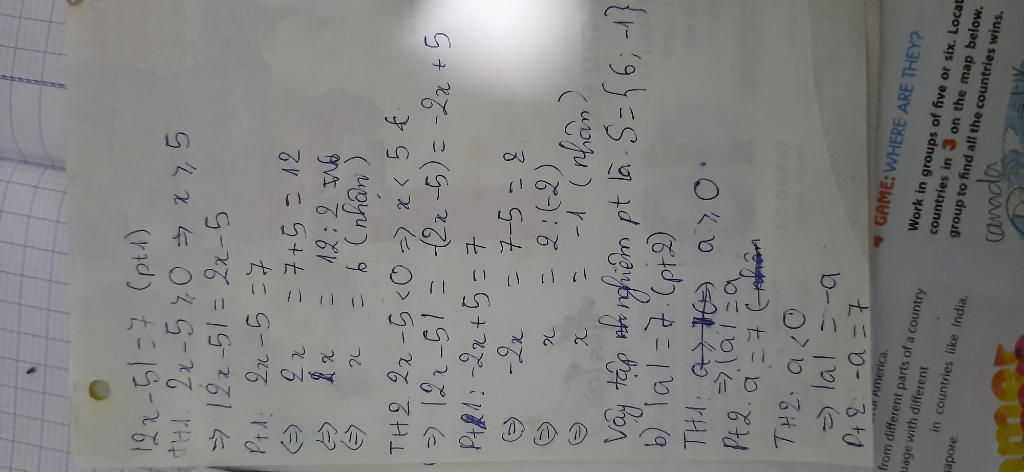 |2x-5| = 7 (pt1)
TH1. 2x-5 ≥ 0 => x ≥ 5
=> |2x-5| = 2x-5
Pt1: 2x-5 = 7
(=) 2x = 7+5 = 12
(=) x = 12:2
(=) x = 6 (nhận)
TH2. 2x-5 < 0 => x < 5
=> |2x-5| = -(2x-5) = -2x+5
Pt1: -2x+5 = 7
(=) -2x = 7-5 = 2
(=) x = 2:(-2)
(=) x = -1 (nhận)
Vậy tập nghiệm pt là S={6; -1}
b) |a| = 7. (pt2)
TH1: a ≥ 0.
=> |a| = a
Pt2: a = 7 (nhận
TH2: a < 0
=> |a| = -a
Pt2: -a = 7
GAME: WHERE ARE THEY?
Work in groups of five or six. Locat
countries in 3 on the map below.
group to find all the countries wins.
America.
from different parts of a country
age with different
in countries like India,
pore.